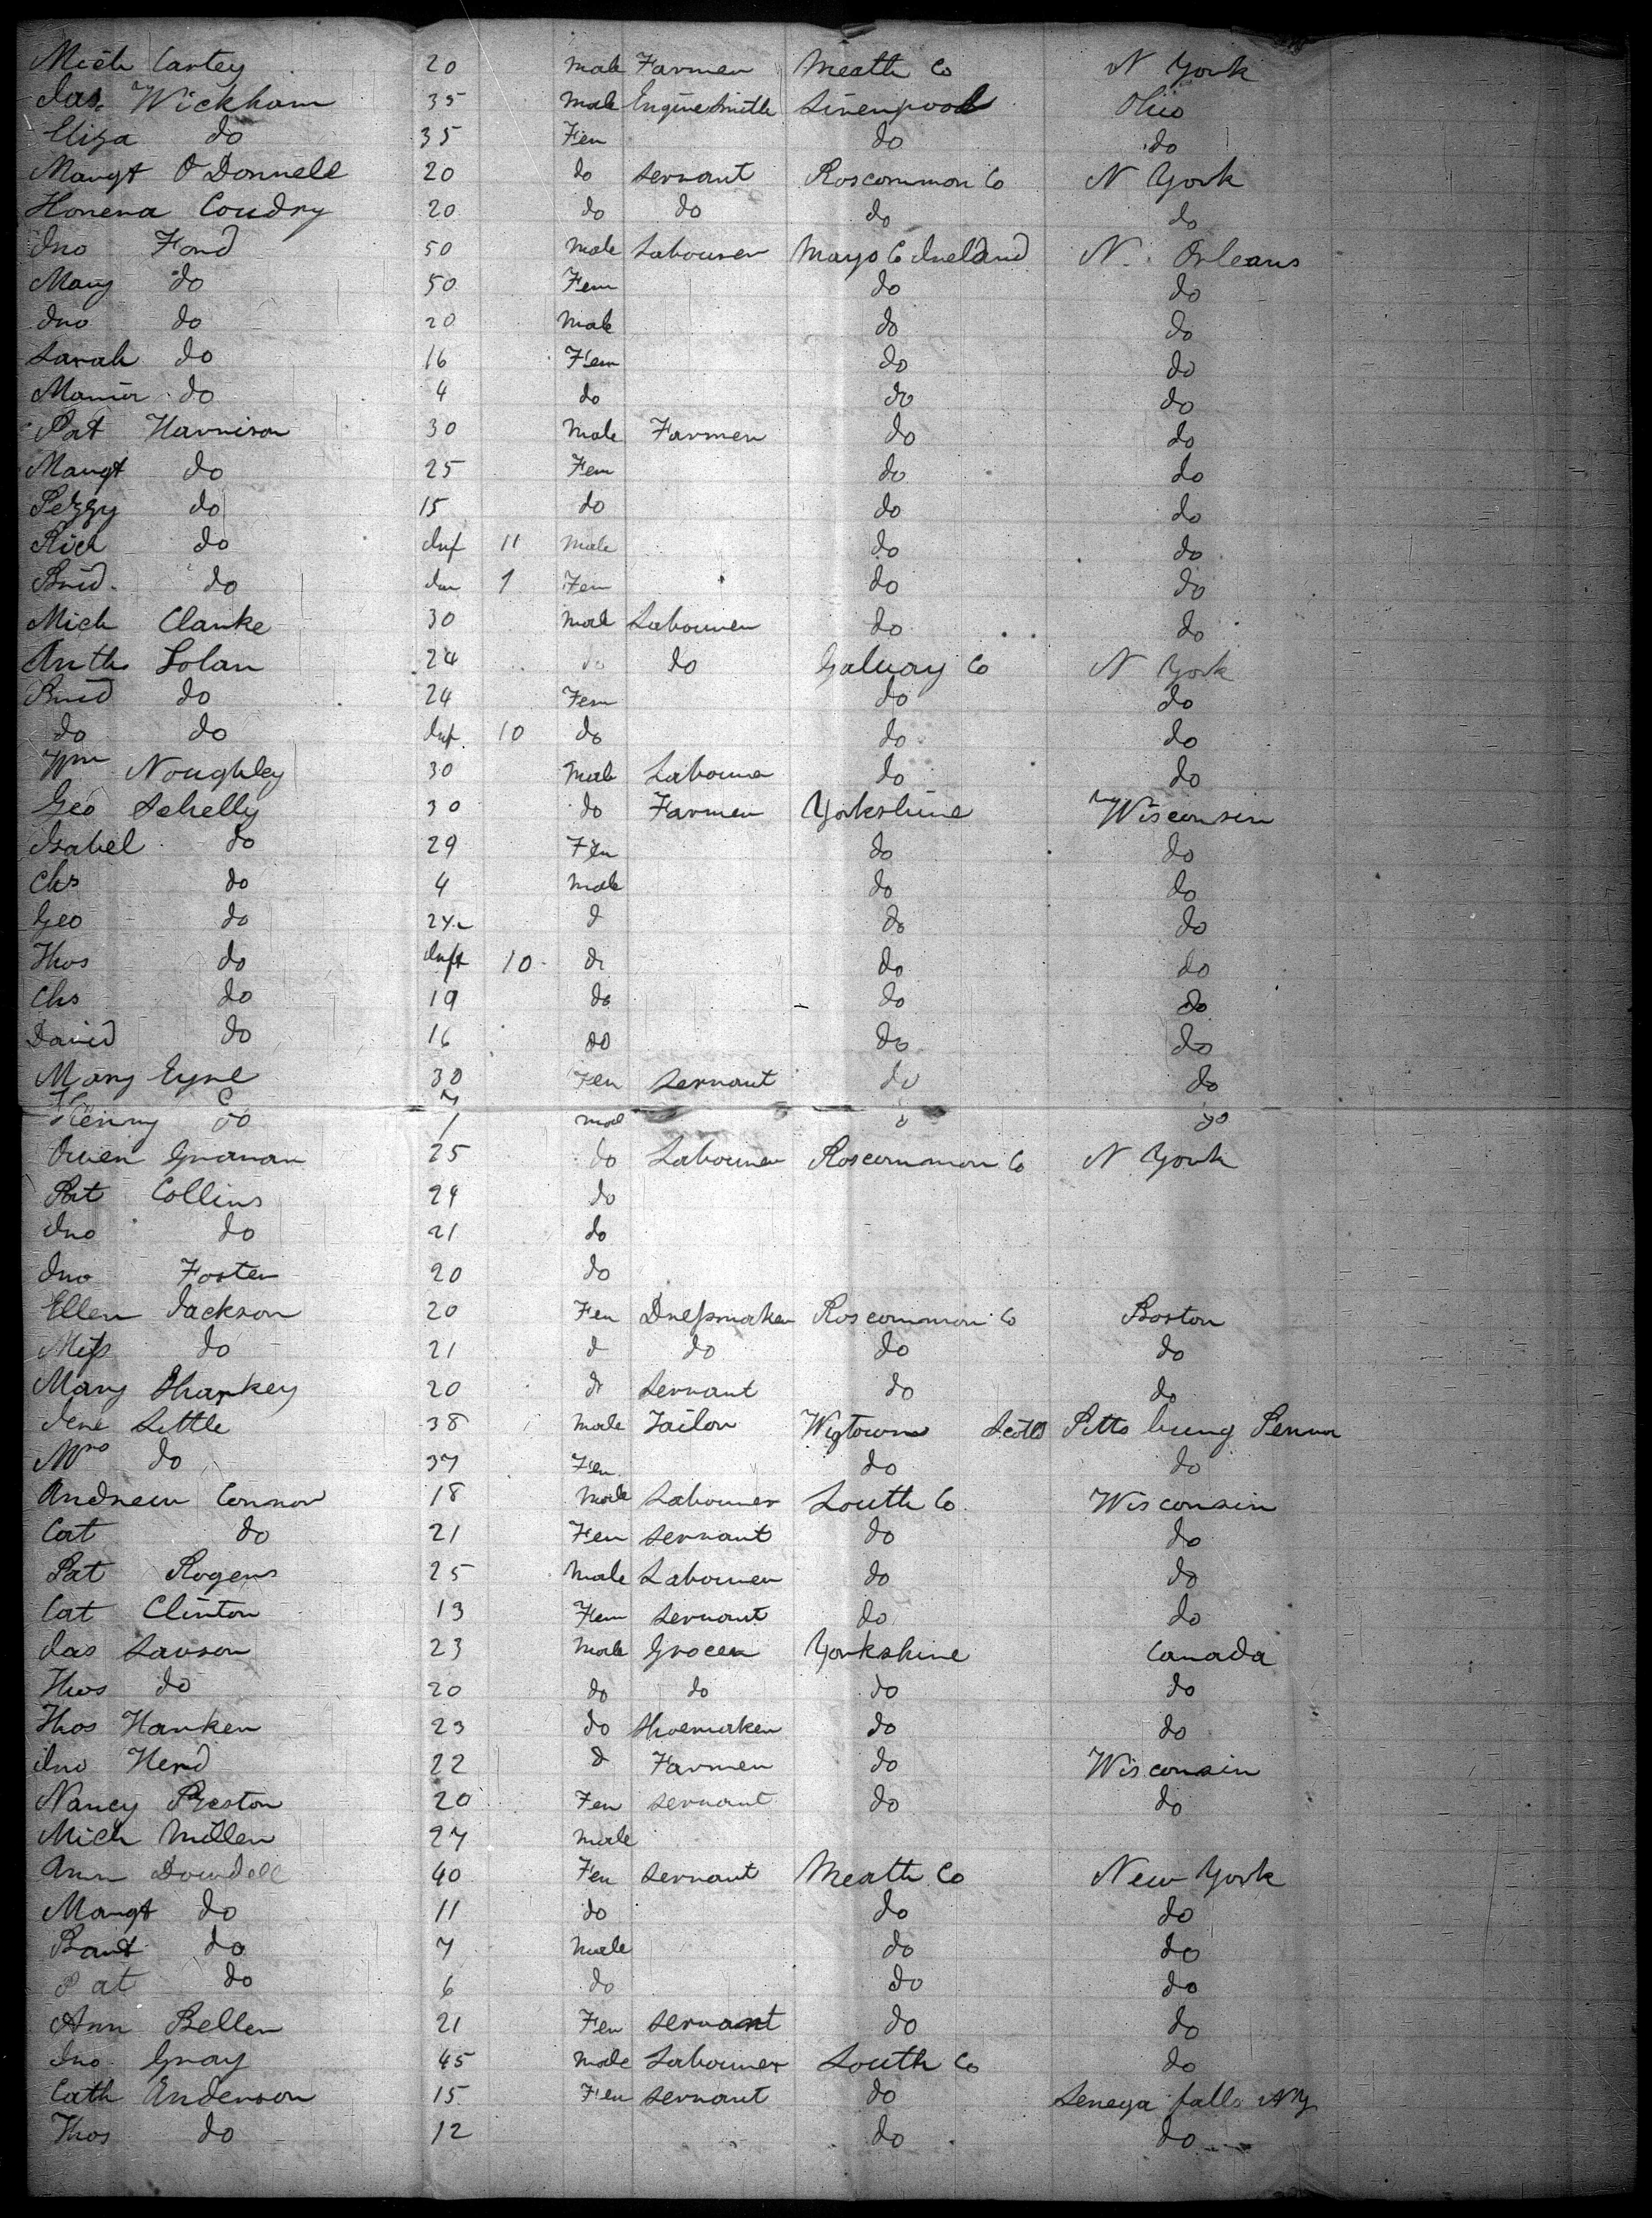 Mich Cartey 20 Male Farmer Meath Co N York
Jas. Wickham 35 Male Engine Smith Liverpool Ohio
Eliza do 35 Fem do do
Margt O Donnell 20 do Servant Roscommon Co N York
Honera Coudry 20 do do do do
Jno Ford 50 Male Labourer Mayo Co Ireland N. Orleans
Mary do 50 Fem do do
Jno do 20 Male do do
Sarah do 16 Fem do do
Maria do 4 do do do
Pat Harrison 30 Male Farmer do do
Margt do 25 Fem do do
Peggy do 15 do do do
Rich do Inf 11 Male do do
Brid. do Inf 1 Fem do do
Mich Clarke 30 Male Labourer do do
Anth Folan 24 do do Galway Co N York
Brid do 24 Fem do do
do do Inf. 10 do do do
Wm Noughley 30 Male Labourer do do
Geo Schelly 30 do Farmer Yorkshire Wisconsin
Isabel do 29 Fem do do
Chs do 4 Male do do
Geo do d do do
Thos do Inft 10 do do do
Chs do 19 do do do
David do 16 do do do
Mary Eyne 30 Fem Servant do do
Henry do 1 Male do do
Owen Granan 25 do Labourer Roscommon Co N York
Pat Collins 24 do
Jno do 21 do
Jno Foster 20 do
Ellen Jackson 20 Fem Dressmaker Roscommon Co Boston
Miss do 21 d do do do
Mary Sharkey 20 do Servant do do
Little 38 Male Tailor Wigtown Scotld Pitts burg Penna
Mrs do 37 Fem do do
Andrew Connor 18 Male Labourer Louth Co. Wisconsin
Cat do 21 Fem Servant do do
Pat Rogers 25 Male Labourer do do
Cat Clinton 13 Fem Servant do do
Jas Lawson 23 Male Grocer Yorkshire Canada
Thos do 20 do do do do
Thos Harker 23 do Shoemaker do do
Jno Herd 22 d Farmer do Wisconsin
Nancy Preston 20 Fem Servant do do
Mich Miller 27 Male
Ann Dowdell 40 Fem Servant Meath Co New York
Margt do 11 do do do
Bart do 7 Male do do
Pat do 6 do do do
Ann Beller 21 Fem Servant do do
Jno. Gray 45 Male Labourer Louth Co do
Cath Anderson 15 Fem Servant do Seneya falls NY
Thos do 12 do do